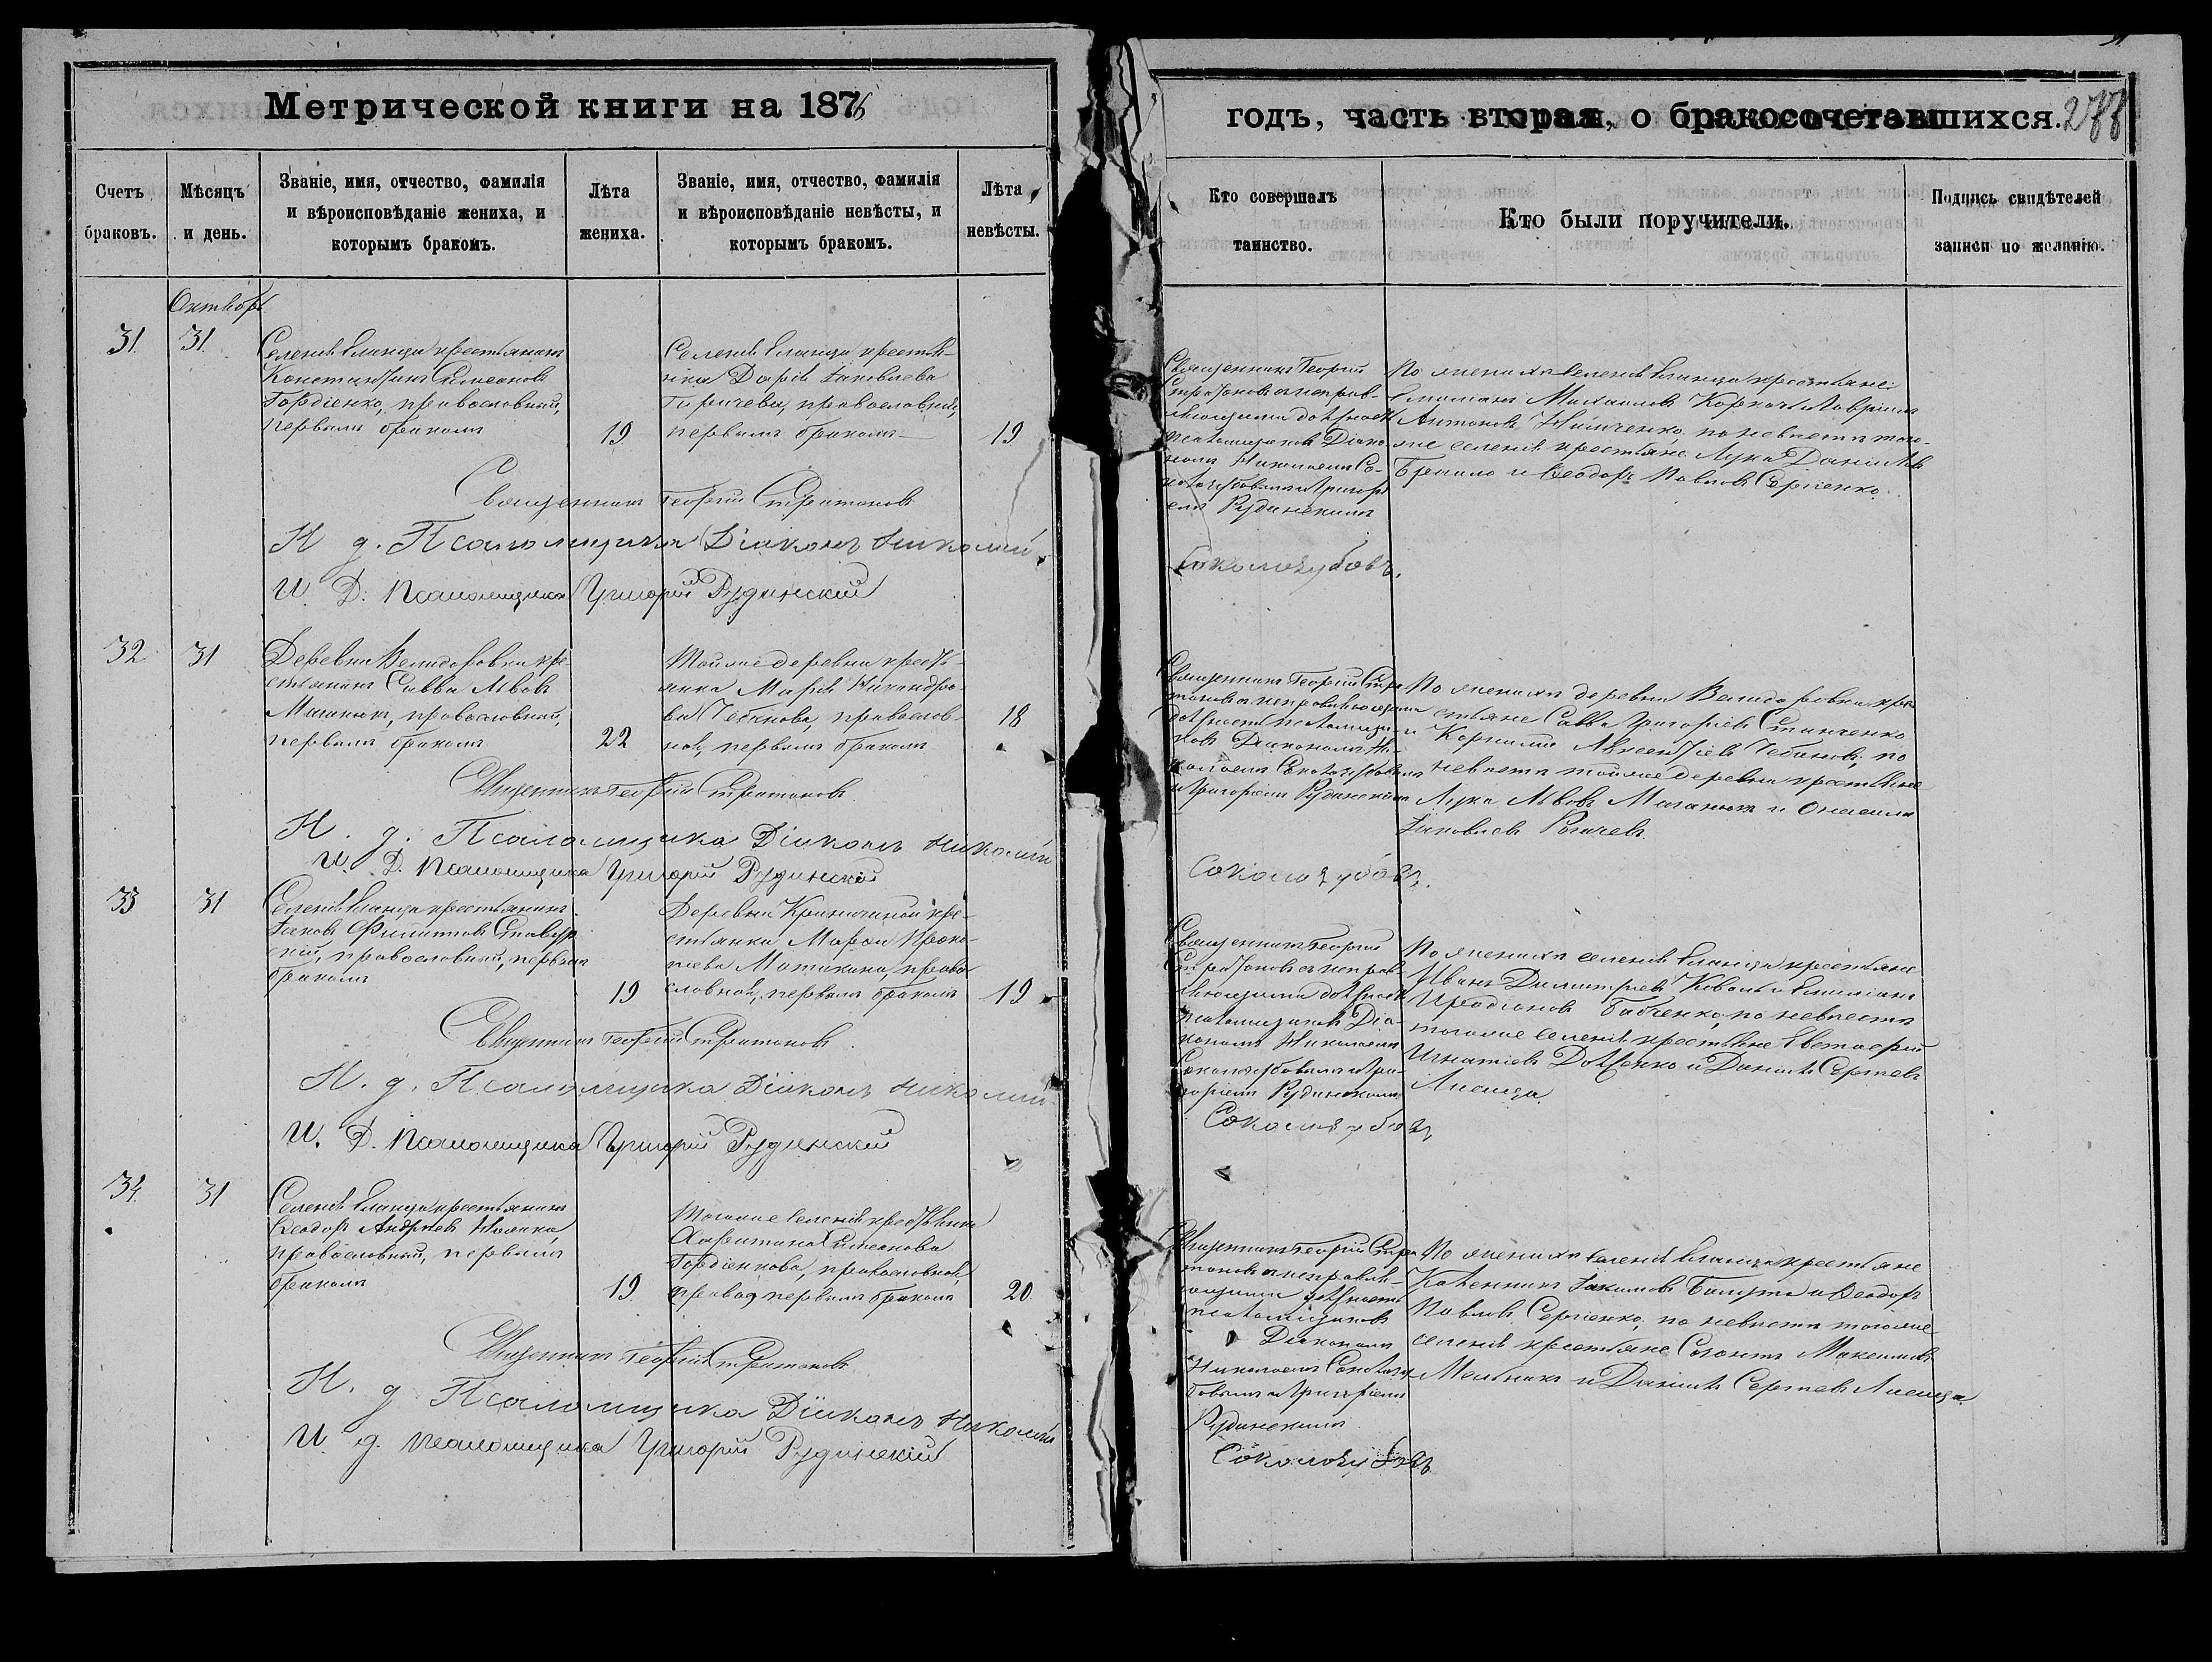 Метрической книги на 1876
годъ, часть вторая, о бракосочетавшихся.
Счетъ браковъ.
Мѣсяцъ и день.
Званіе, имя, отчество, фамилія и вѣроисповѣданіе жениха, и которымъ бракомъ.
Лѣта жениха.
Званіе, имя, отчество, фамилія и вѣроисповѣданіе невѣсты, и которымъ бракомъ.
Лѣта невѣсты.
Кто совершалъ таинство.
Кто были поручители.
Подпись свидѣтелей записи по желанію.
Октябрь
31.
31.
Селенія Еланца крестьянинъ
Константинъ Симеоновъ
Гордіенко, православный,
первымъ бракомъ
19
Селенія Еланца крестья-
нка Дарія Іаковлева
православной,
первымъ бракомъ
19
Священникъ Георгій
Стратоновъ съ исправ-
ляющими должность
псаломщиковъ Діако-
номъ Николаемъ Со-
колозубовымъ и Григорі-
емъ Рудинскимъ
По женихѣ селенія Еланца крестьяне:
Емиліанъ Михаиловъ и Лаврентій
Антоновъ по невѣстѣ того-
же селенія крестьяне Лука Даніиловъ
и Ѳеодоръ Павловъ Сергіенко.
Священникъ Георгій Стратоновъ
И. д. Псаломщика Діаконъ Николай
Соколозубовъ.
И. Д. Псаломщика Григорій Рудинскій
32
31
Деревни кре-
стьянинъ Савва Львовъ
православный,
первымъ бракомъ
22
Той же деревни кресть-
янка Марія Никандро-
ва православ-
ной, первымъ бракомъ
18
Священникъ Георгій Стра-
тоновъ съ исправляющими
должность псаломщи-
ковъ Діакономъ Ни-
колаемъ Соколозубовымъ
и Григоріемъ Рудинскимъ
По женихѣ деревни кре-
стьяне Савва Григоріевъ Степченко
и Корнилій Авксентіевъ по
невѣстѣ той же деревни крестьяне
Лука Львовъ и
Іаковлевъ Рогачевъ
Священникъ Георгій Стратоновъ
И. д. Псаломщика Діаконъ Николай
Соколозубовъ.
И. Д. Псаломщика Григорій Рудинскій
33
31
Селенія Еланца крестьянинъ
Іаковъ Филипповъ
православный, первымъ
бракомъ
19
Деревни Криничной кре-
стьянка Марѳа Проко-
піева право-
славной, первымъ бракомъ
19
Священникъ Георгій
Стратоновъ съ исправ-
ляющими должность
псаломщиковъ Діа-
кономъ Николаемъ
Соколозубовымъ и Гри-
горіемъ Рудинскимъ
По женихѣ селенія Еланца крестьяне
Иванъ Димитріевъ Коваль и Емиліанъ
Иродіоновъ Бабченко, по невѣстѣ
того же селенія крестьяне
Игнатіевъ Доценко и Даніилъ Сергѣевъ
Лисица.
Священникъ Георгій Стратоновъ
И. д. Псаломщика Діаконъ Николай
Соколозубовъ
И. Д. Псаломщика Григорій Рудинскій
34.
31
Селенія Еланца крестьянинъ
Ѳеодоръ Андреевъ
православный, первымъ
бракомъ
19
Того же селенія крестьянка
Харитина Симеонова
Гордіенкова, православной,
первымъ бракомъ
20.
Священникъ Георгій Стра-
тоновъ съ исправля-
ющими должность
псаломщиковъ
Діакономъ
Николаемъ Соколозу-
бовымъ и Григоріемъ
Рудинскимъ
По женихѣ селенія Еланца крестьяне
Іакимовъ и Ѳеодоръ
Павловъ Сергіенко, по невѣстѣ того же
селенія крестьяне Созонтъ Максимовъ
Мельникъ и Даніилъ Сергѣевъ Лисица.
Священникъ Георгій Стратоновъ
И. д. Псаломщика Діаконъ Николай
Соколозубовъ
И. д. Псаломщика Григорій Рудинскій